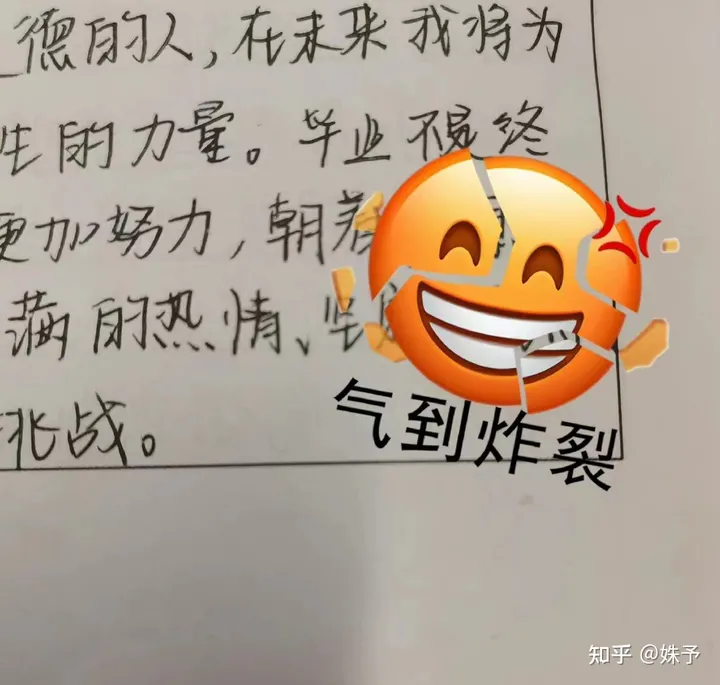 德的人，在未来我将为
生的力量。毕业不是终
更加努力，朝着
满的热情、坚
挑战。
气到炸裂
知乎 @姝予